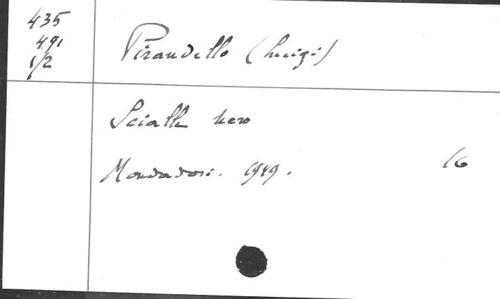 435
491
1/2
Pirandello (Luigi)
Scialle nero
Mondadori. 1949.
16